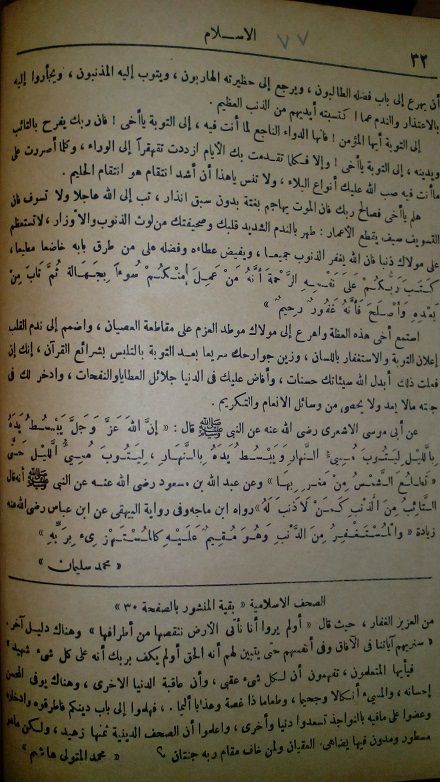 الاسلام
٧٧
٣٢
أن يهرع إلى باب فضله الطالبون ، ويرجع إلى حظيرته الهاربون ، ويتوب إليه المذنبون ، ويجأروا إليه
بالاعتذار والندم مما اكتسبته أيديهم من الذنب العظيم .
إلى التوبة أيها المؤمن ! فانها الدواء الناجع لما أنت فيه ، إلى التوبة ياأخى ! فان ربك يفرح بالتائب
ويدينه ، إلى التوبة ياأخى ! وإلا فكلما تقدمت بك الأيام ازددت تقهقراً إلى الوراء ، وكلما أصررت على
ماأنت فيه صب الله عليك أنواع البلاء ، ولا تنس ياهذا أن أشد انتقام هو انتقام الحليم .
هلم ياأخى فصالح ربك فان الموت يهاجم بغتة بدون سبق انذار ، تب إلى الله عاجلا ولا تسوف فان
التسويف سيف يقطع الأعمار : طهر بالندم الشديد قلبك وصحيفتك من لوث الذنوب والأوزار ، لاتستعظم
على مولاك ذنبا فان الله يغفر الذنوب جميعا ، ويفيض عطاءه وفضله على من طرق بابه خاضعا مطيعا ،
كَتَبَ رَبُّكُمْ عَلَى نَفْسِهِ الرَّحْمَةَ أَنَّهُ مَنْ عَمِلَ مِنْكُمْ سُوءاً بِجَهَالَةٍ ثُمَّ تَابَ مِنْ
بَعْدِهِ وَأَصْلَحَ فَأَنَّهُ غَفُورٌ رحِيمٌ »
استمع أخى هذه العظة واهرع إلى مولاك موطد العزم على مقاطعة العصيان ، واضمم إلى ندم القلب
إعلان التوبة والاستغفار باللسان ، وزين جوارحك سريعا بعد التوبة بالتلبس بشرائع القرآن ، إنك إن
فعلت ذلك أبدل الله سيئاتك حسنات ، وأفاض عليك فى الدنيا جلائل العطايا والنفحات ، وادخر لك فى
جنته مالا يعد ولا يحصى من وسائل الانعام والتكريم .
عن أبى موسى الأشعرى رضى الله عنه عن النبى ﷺ قال : « إِنَّ اللهَ عَزَّ وَجَلَّ يَبْسُطُ يَدَهُ
بِاللَّيْلِ لِيَتُوبَ مُسِىءُ النَّهَارِ وَيَبْسُطُ يَدَهُ بِالنَّهَارِ ، لِيَتُوبَ مُسِىءُ اللَّيْلِ حَتَّى
تَطْلُعَ الشَّمْسُ مِنْ مَغْرِبِهَا » وعن عبد الله بن مسعود رضى الله عنه عن النبى ﷺ أنه قال
التَّائِبُ مِنَ الذَّنْبِ كَمَنْ لَا ذَنْبَ لَهُ » رواه ابن ماجه وفى رواية البيهقى عن ابن عباس رضى الله عنه
زيادة « والْمُسْتَغْفِرُ مِنَ الذَّنْبِ وَهُوَ مُقِيمٌ عَلَيْهِ كالْمُسْتَهْزِىءِ بِرَبِّهِ »
« محمد سليمان »
الصحف الاسلامية « بقية المنشور بالصفحة ٣٠ »
من العزيز الغفار ، حيث قال « أولم يروا أنا نأتى الأرض ننقصها من أطرافها » وهناك دليل آخر.
« سنريهم آياتنا فى الآفاق وفى أنفسهم حتى يتبين لهم أنه الحق أولم يكف بربك أنه على كل شىء شهيد »
فيأيها المتعلمون ، تفهمون أن لكل شىء عقبى ، وأن عاقبة الدنيا الاخرى ، وهناك يوفى المحسن
إحسانه ، والمسىء أنكالا وجحيما ، وطعاما ذا غصة وهذابا أليما . فهلموا إلى باب دينكم فاطرقوه وادخلوه
وعضوا على مافيه بالنواجذ تسعدوا دنيا وأخرى ، واعلموا أن الصحف الدينية ثمنها زهيد ، ولكن ماهو
مسطور ومدون فيها يضاهى العقيان ولمن خاف مقام ربه جنتان ؟
« محمد المتولى هاشم »